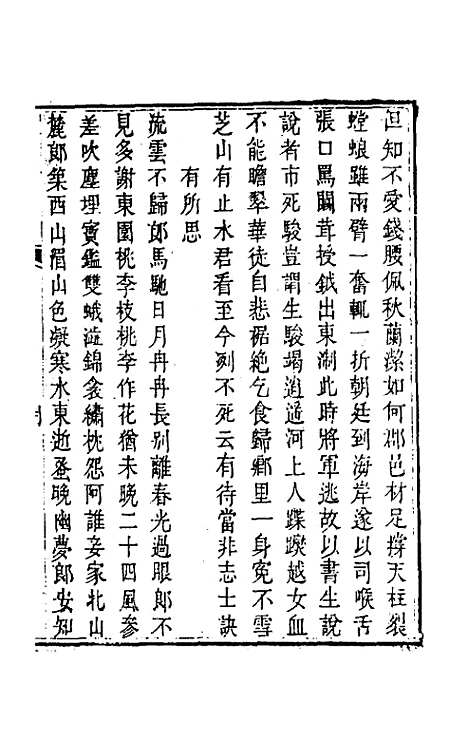 但知不愛錢腰佩秋蘭潔如何郡邑材足撐天柱裂
螳螂雖兩臂一奮輒一折朝廷到海岸遂以司喉舌
張口罵闒茸授鉞出東淛此時將軍逃故以書生說
說者市死駿豈謂生駿竭逍遥河上人蹀躞越女血
不能瞻犂華徒自悲裾絶乞食歸鄉里一身寃不雪
芝山有止水君看至今冽不死云有待當非志士訣
有所思
流雲不歸郎馬馳日月冉冉長别離春光過眼郎不
見多謝東園桃李枝桃李作花猶未晚二十四風參
差吹塵埋寳鑑雙蛾澁錦衾繡枕怨阿誰妾家北山
麓郎築西山湄山色凝寒水東逝蚤晩幽夢郎安知